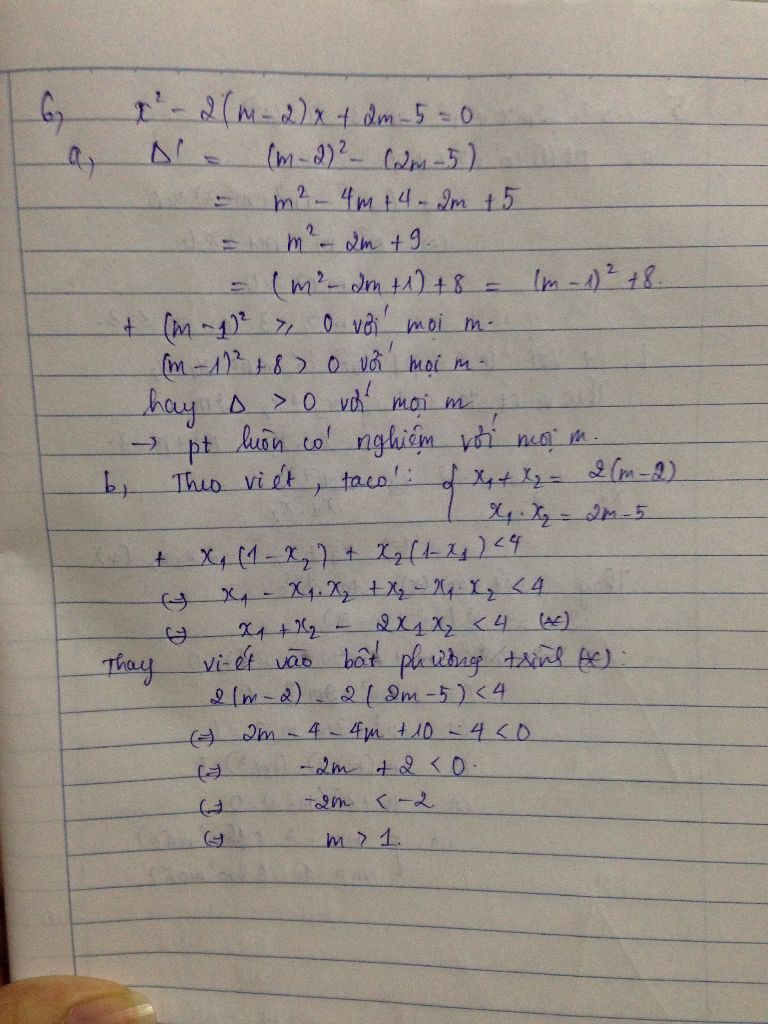 6, x² - 2(m-2)x + 2m-5 = 0
a, Δ' = (m-2)² - (2m-5)
= m² - 4m + 4 - 2m + 5
= m² - 2m + 9.
= (m² - 2m + 1) + 8 = (m-1)² + 8.
+ (m-1)² ≥ 0 với mọi m.
(m-1)² + 8 > 0 với mọi m.
hay Δ > 0 với mọi m
→ pt luôn có nghiệm với mọi m.
b, Theo vi ét, ta có: { x₁ + x₂ = 2(m-2)
x₁.x₂ = 2m-5
+ x₁(1-x₂) + x₂(1-x₁) < 4
(=) x₁ - x₁.x₂ + x₂ - x₁.x₂ < 4
(=) x₁ + x₂ - 2x₁x₂ < 4 (*)
Thay vi-ét vào bất phương trình (*):
2(m-2) - 2(2m-5) < 4
(=) 2m - 4 - 4m + 10 - 4 < 0
(=) -2m + 2 < 0.
(=) -2m < -2
(=) m > 1.